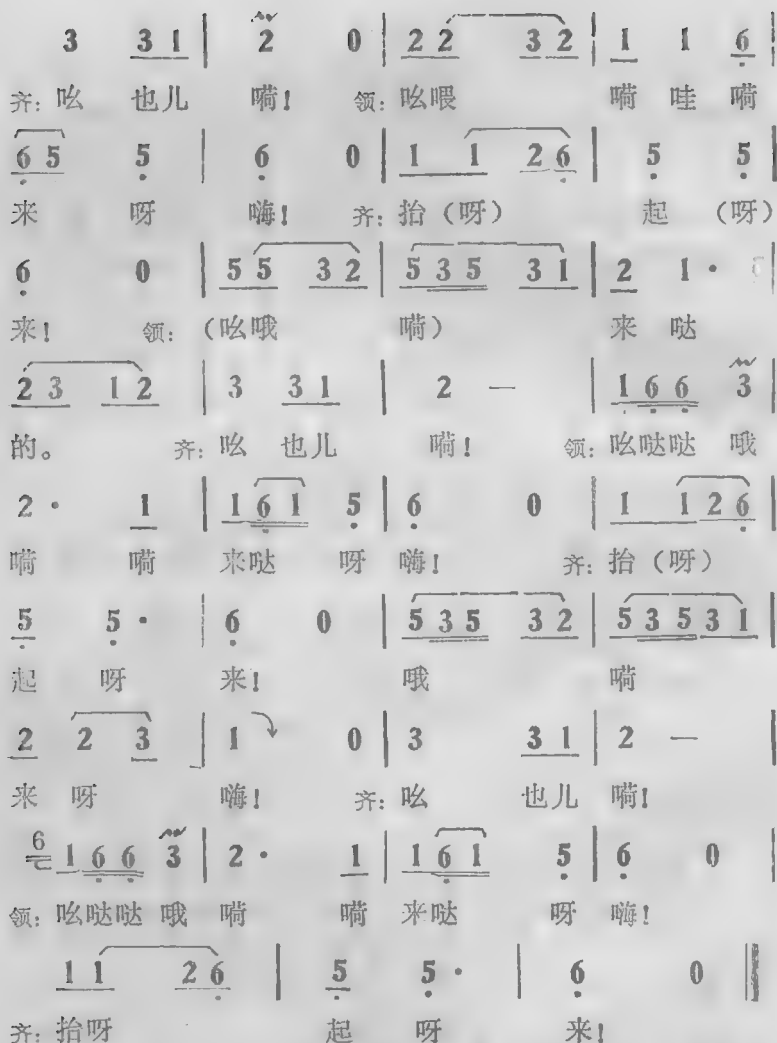 3 3 1 | 2 0 | 2 2 3 2 | 1 1 6 |
齐: 吆 也儿 嗬! 领: 吆喂 嗬 哇 嗬
6 5 5 | 6 0 | 1 1 2 6 | 5 5 |
来 呀 嗨! 齐: 抬(呀) 起 (呀)
6 0 | 5 5 3 2 | 5 3 5 3 1 | 2 1 · 6 |
来! 领: (吆哦 嗬) 来 哒
2 3 1 2 | 3 3 1 | 2 — | 1 6 6 3 |
的。 齐: 吆 也儿 嗬! 领: 吆哒哒 哦
2 · 1 | 1 6 1 5 | 6 0 | 1 1 2 6 |
嗬 嗬 来哒 呀 嗨! 齐: 抬(呀)
5 5 · | 6 0 | 5 3 5 3 2 | 5 3 5 3 1 |
起 呀 来! 哦 嗬
2 2 3 | 1 0 | 3 3 1 | 2 — |
来 呀 嗨! 齐: 吆 也儿 嗬!
6 1 6 6 3 | 2 · 1 | 1 6 1 5 | 6 0 |
领: 吆哒哒 哦 嗬 嗬 来哒 呀 嗨!
1 1 2 6 | 5 5 · | 6 0 ‖
齐: 抬呀 起 呀 来!